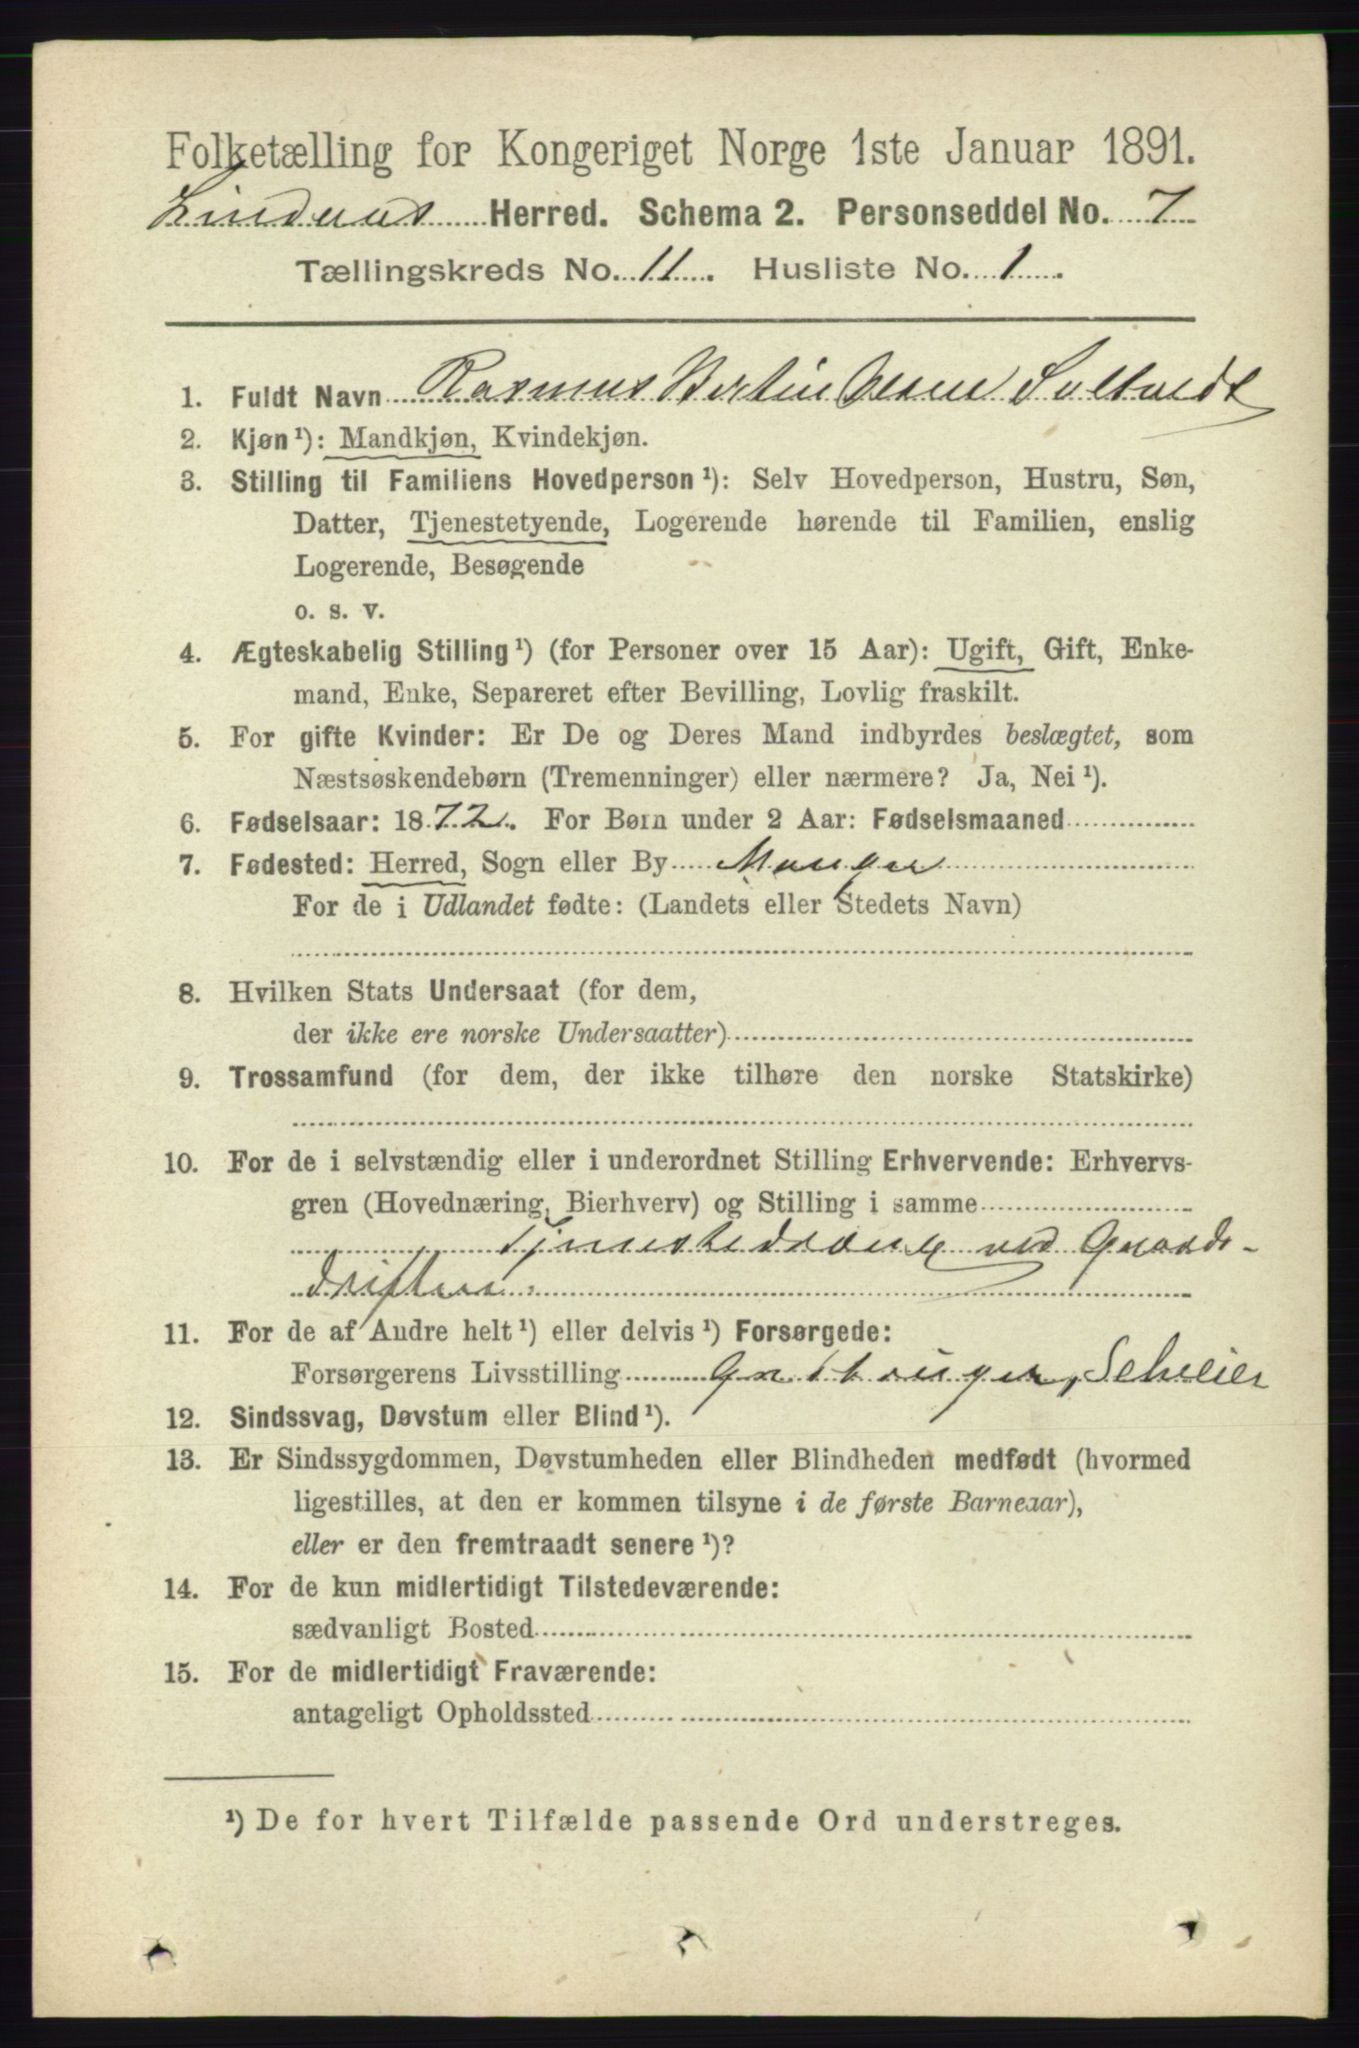 Folketælling for Kongeriget Norge 1ste Januar 1891.
Lindaas Herred. Schema 2. Personseddel No. 7
Tællingskreds No. 11. Husliste No. 1.
1. Fuldt Navn Rasmus Bertin Olsen
2. Kjøn ¹): Mandkjøn, Kvindekjøn.
3. Stilling til Familiens Hovedperson ¹): Selv Hovedperson, Hustru, Søn,
Datter, Tjenestetyende, Logerende hørende til Familien, enslig
Logerende, Besøgende
o. s. v.
4. Ægteskabelig Stilling ¹) (for Personer over 15 Aar): Ugift, Gift, Enke-
mand, Enke, Separeret efter Bevilling, Lovlig fraskilt.
5. For gifte Kvinder: Er De og Deres Mand indbyrdes beslægtet, som
Næstsøskendebørn (Tremenninger) eller nærmere? Ja, Nei ¹).
6. Fødselsaar: 1872. For Børn under 2 Aar: Fødselsmaaned
7. Fødested: Herred, Sogn eller By Manger
For de i Udlandet fødte: (Landets eller Stedets Navn)
8. Hvilken Stats Undersaat (for dem,
der ikke ere norske Undersaatter)
9. Trossamfund (for dem, der ikke tilhøre den norske Statskirke)
10. For de i selvstændig eller i underordnet Stilling Erhvervende: Erhvervs-
gren (Hovednæring, Bierhverv) og Stilling i samme
Tjenestedreng ved Gaards-
driften.
11. For de af Andre helt ¹) eller delvis ¹) Forsørgede:
Forsørgerens Livsstilling Gaardbruger, Selveier
12. Sindssvag, Døvstum eller Blind ¹).
13. Er Sindssygdommen, Døvstumheden eller Blindheden medfødt (hvormed
ligestilles, at den er kommen tilsyne i de første Barneaar),
eller er den fremtraadt senere ¹)?
14. For de kun midlertidigt Tilstedeværende:
sædvanligt Bosted
15. For de midlertidigt Fraværende:
antageligt Opholdssted
¹) De for hvert Tilfælde passende Ord understreges.